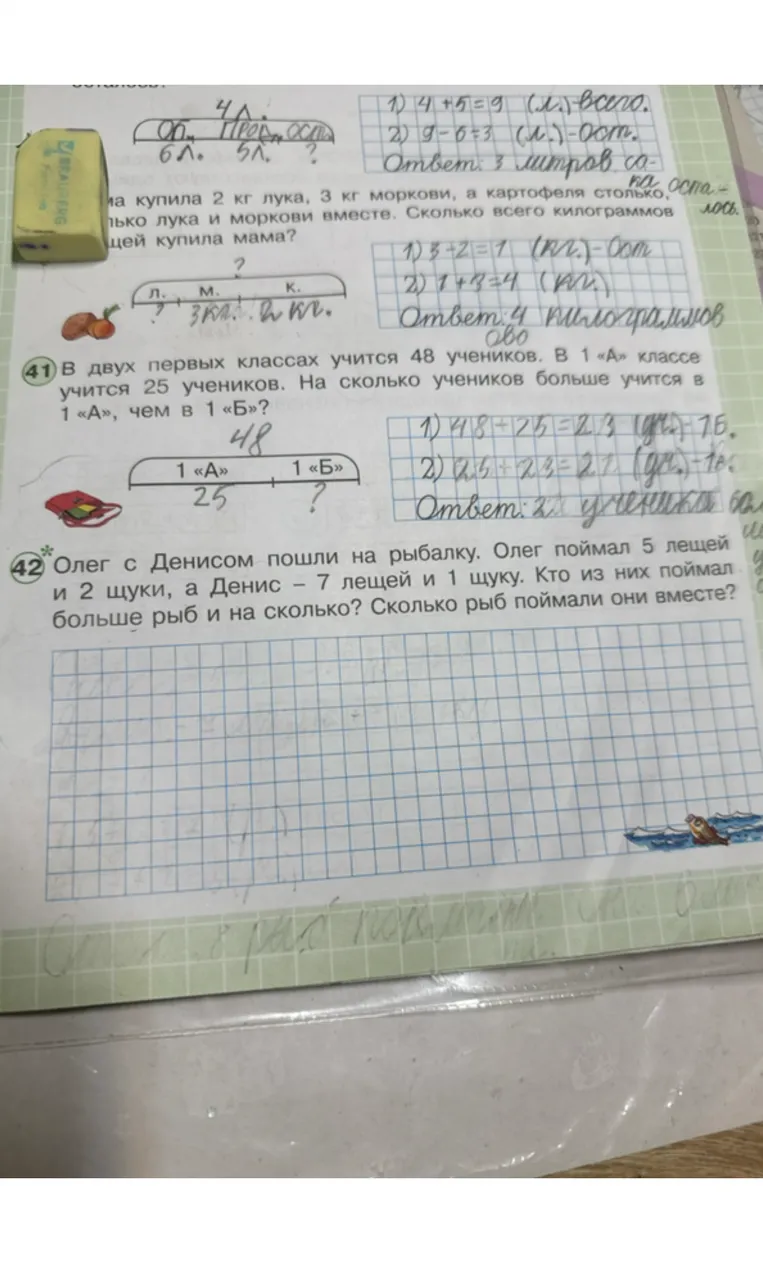 осталось?
4л.
ОП. ПРОД. ОСТ.
6л. 5л. ?
1) 4+5=9 (л.)-всего.
2) 9-6=3 (л.)-Ост.
Ответ: 3 литров со-
ка оста-
лось.
ма купила 2 кг лука, 3 кг моркови, а картофеля столько,
лько лука и моркови вместе. Сколько всего килограммов
щей купила мама?
?
л. м. к.
? 3кг. 2кг.
1) 3-2=1 (кг.)-Ост
2) 1+3=4 (кг.)
Ответ: 4 килограммов
ово
41 В двух первых классах учится 48 учеников. В 1 «А» классе
учится 25 учеников. На сколько учеников больше учится в
1 «А», чем в 1 «Б»?
48
1 «А» 1 «Б»
25 ?
1) 48-25=23 (уч.)-1б.
2) 25-23=2 (уч.)
Ответ: 2 ученика бол
42* Олег с Денисом пошли на рыбалку. Олег поймал 5 лещей
и 2 щуки, а Денис – 7 лещей и 1 щуку. Кто из них поймал
больше рыб и на сколько? Сколько рыб поймали они вместе?
8 рыб поймали